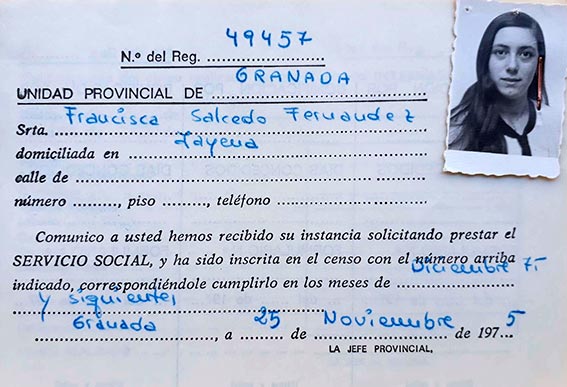 N.º del Reg. 49457
UNIDAD PROVINCIAL DE GRANADA
Srta. Francisca Salcedo Fernandez
domiciliada en Jayena
calle de
número, piso, teléfono
Comunico a usted hemos recibido su instancia solicitando prestar el
SERVICIO SOCIAL, y ha sido inscrita en el censo con el número arriba
indicado, correspondiéndole cumplirlo en los meses de Diciembre 75
y siguientes
Granada, a 25 de Noviembre de 1975
LA JEFE PROVINCIAL,